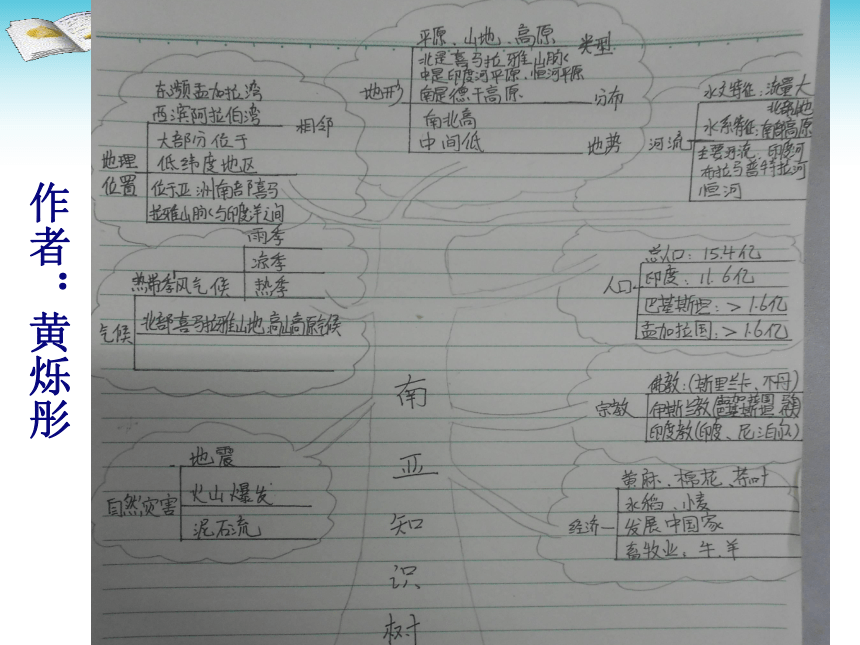 作者：黄烁彤
平原、山地、高原
类型
北是喜马拉雅山脉
中是印度河平原、恒河平原
南是德干高原
分布
地形
南北高
中间低
地势
东濒孟加拉湾
西滨阿拉伯湾
相邻
大部分位于
低纬度地区
地理
位置
位于亚洲南部喜马
拉雅山脉与印度洋之间
水文特征：流量大
北部山地
水系特征：南部高原
河流
主要河流：印度河
布拉马普特拉河
恒河
雨季
凉季
热带季风气候
热季
气候
北部喜马拉雅山地：高山高原气候
总人口：15.4亿
人口
印度：11.6亿
巴基斯坦：>1.6亿
孟加拉国：>1.6亿
佛教：(斯里兰卡、不丹)
宗教
伊斯兰教
印度教(印度、尼泊尔)
地震
自然灾害
火山爆发
泥石流
黄麻、棉花、茶叶
水稻、小麦
经济
发展中国家
畜牧业：牛、羊
南
亚
知
识
树